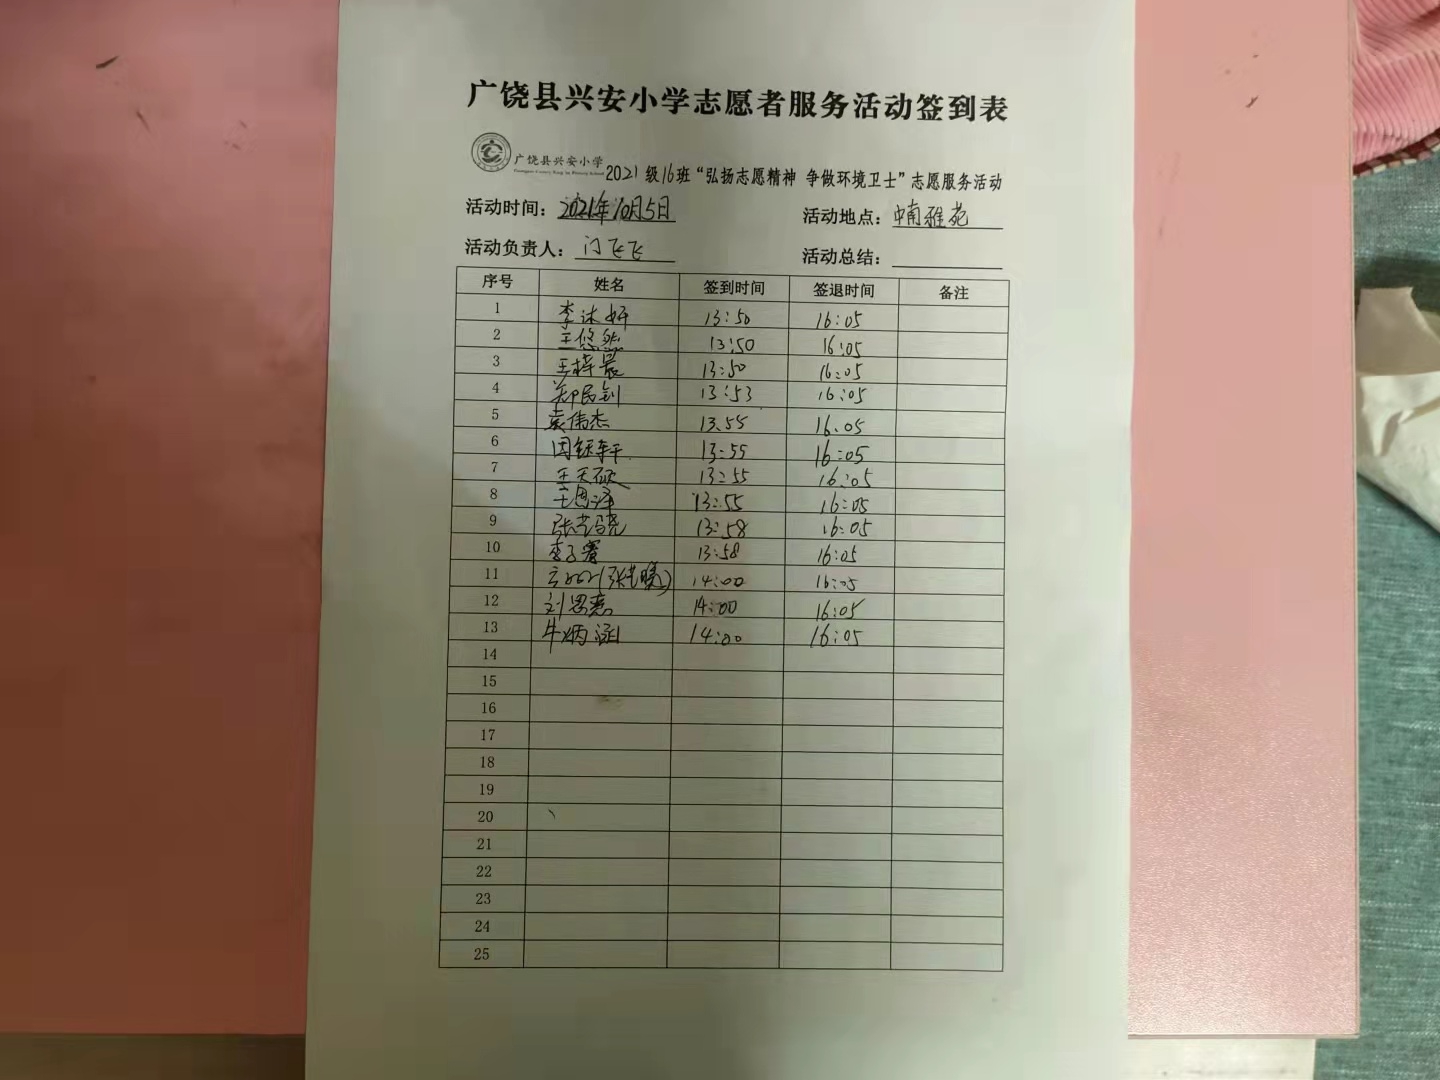 广饶县兴安小学志愿者服务活动签到表
广饶县兴安小学
2021级16班“弘扬志愿精神 争做环境卫士”志愿服务活动
活动时间：2021年10月5日 活动地点：中南雅苑
活动负责人：门飞飞 活动总结：
序号 姓名 签到时间 签退时间 备注
1 李沐妍 13:50 16:05
2 王悠然 13:50 16:05
3 王梓晨 13:50 16:05
4 郑民钊 13:53 16:05
5 袁伟杰 13.55 16.05
6 钰轩 13:55 16:05
7 王天硕 13:55 16:05
8 王恩泽 13:55 16:05
9 张 13:58 16:05
10 李子赛 13:58 16:05
11 14:00 16:05
12 刘思慧 14:00 16:05
13 牛炳涵 14:00 16:05
14
15
16
17
18
19
20
21
22
23
24
25